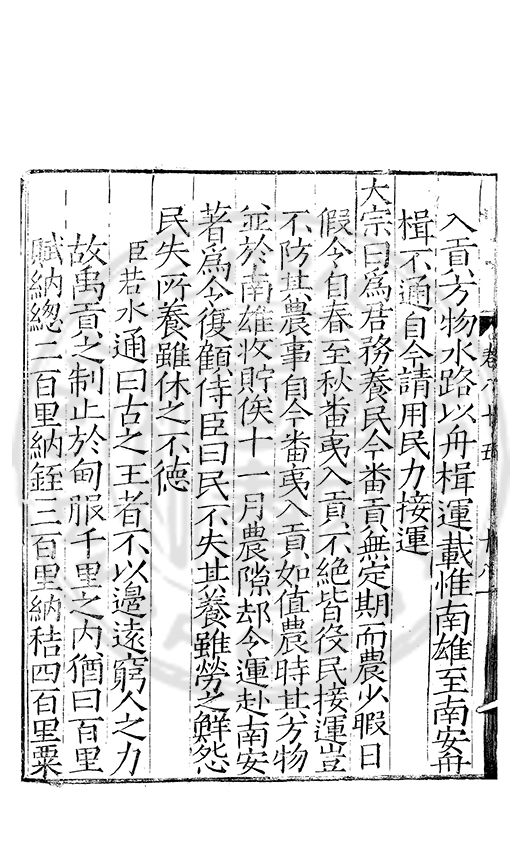 入貢方物水路以舟楫運載惟南雄至南安舟
楫不通自今請用民力接運
大宗曰爲君務養民今番貢無定期而農少暇日
假令自春至秋畨夷入貢不絕皆役民接運豈
不防其農事自今畨夷入貢如值農時其方物
並於南雄收貯俟十一月農隙却令運赴南安
著爲令復顧侍臣曰民不失其養雖勞之鮮怨
民失所養雖休之不德
臣若水通曰古之王者不以邊遠窮人之力
故禹貢之制止於甸服千里之内猶曰百里
賦納緫二百里納銍三百里納秸四百里粟
卷八十五
十八